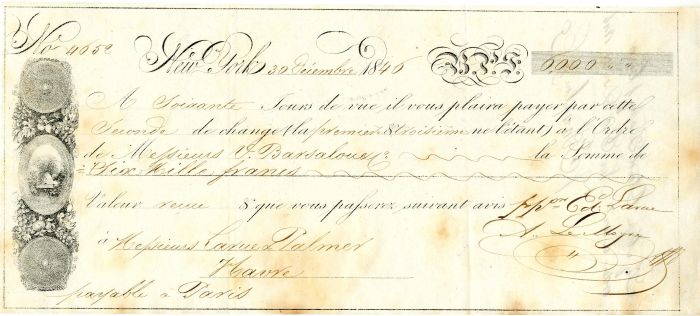 No 4052 New York 30 Décembre 1846 B.P.F. 6000 " "
A Soixante Jours de vue, il vous plaira payer par cette
Seconde de change (la premiere & troisieme ne l'étant) à l'Ordre
de Messieurs J. Barsalou & Co la Somme de
= Six Mille francs
Valeur recue & que vous passerez suivant avis ppon Ed Larue
à Messieurs Larue & Palmer A. Le Moyne
Havre
payable a Paris